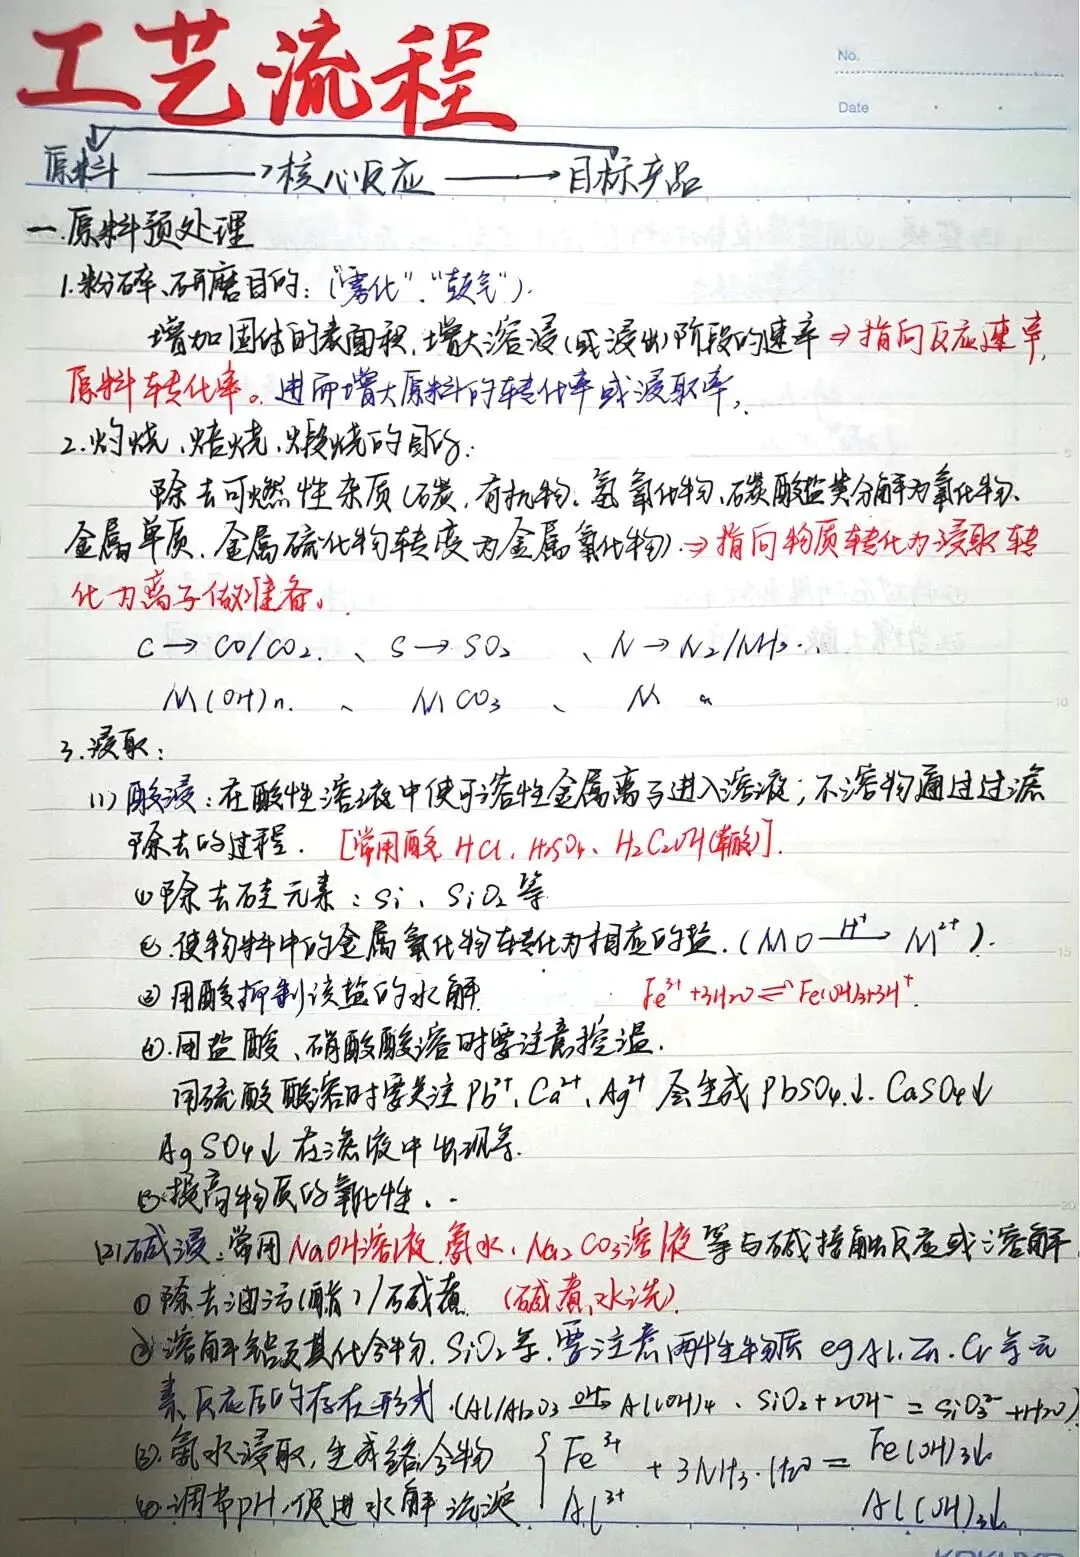 工艺流程
No.
Date
原料 → 核心反应 → 目标产品
一.原料预处理
1.粉碎、研磨目的:(“雾化”、“鼓气”).
增加固体的表面积,增大溶浸(或浸出)阶段的速率⇒指向反应速率,
原料转化率。进而增大原料的转化率或浸取率,
2.灼烧、焙烧、煅烧的目的:
除去可燃性杂质(碳,有机物、氢氧化物、碳酸盐类分解为氧化物、
金属单质、金属硫化物转变为金属氧化物)⇒指向物质转化为浸取转
化为离子做准备。
C→CO/CO₂、S→SO₂、N→N₂/NH₃
M(OH)n.、MCO₃、M
3.浸取:
(1)酸浸:在酸性溶液中使可溶性金属离子进入溶液;不溶物通过过滤
除去的过程.[常用酸 HCl、H₂SO₄、H₂C₂O4(草酸)].
①除去硅元素:Si、SiO₂等
②.使物料中的金属氧化物转化为相应的盐.(MO —H⁺→ M²⁺).
③用酸抑制该盐的水解 Fe³⁺+3H₂O⇌Fe(OH)₃+3H⁺.
④.用盐酸、硝酸酸溶时要注意控温.
用硫酸酸溶时要关注Pb²⁺、Ca²⁺、Ag²⁺会生成PbSO₄↓.CaSO₄↓
AgSO₄↓在滤液中出现等.
⑤提高物质的氧化性.
(2)碱浸:常用NaOH溶液、氨水、Na₂CO₃溶液等与碱接触反应或溶解
①除去油污(酯)/碱煮 (碱煮、水洗).
②溶解铝及其化合物、SiO₂等.要注意两性物质 eg Al.Zn.Cr等元
素反应后的存在形式.(Al/Al₂O₃ —OH⁻→ Al(OH)₄、SiO₂+2OH⁻=SiO₃²⁻+H₂O)
③.氨水浸取,生成络合物 { Fe³⁺ +3NH₃·H₂O = Fe(OH)₃↓
④.调节pH,促进水解沉淀 Al³⁺ Al(OH)₃↓